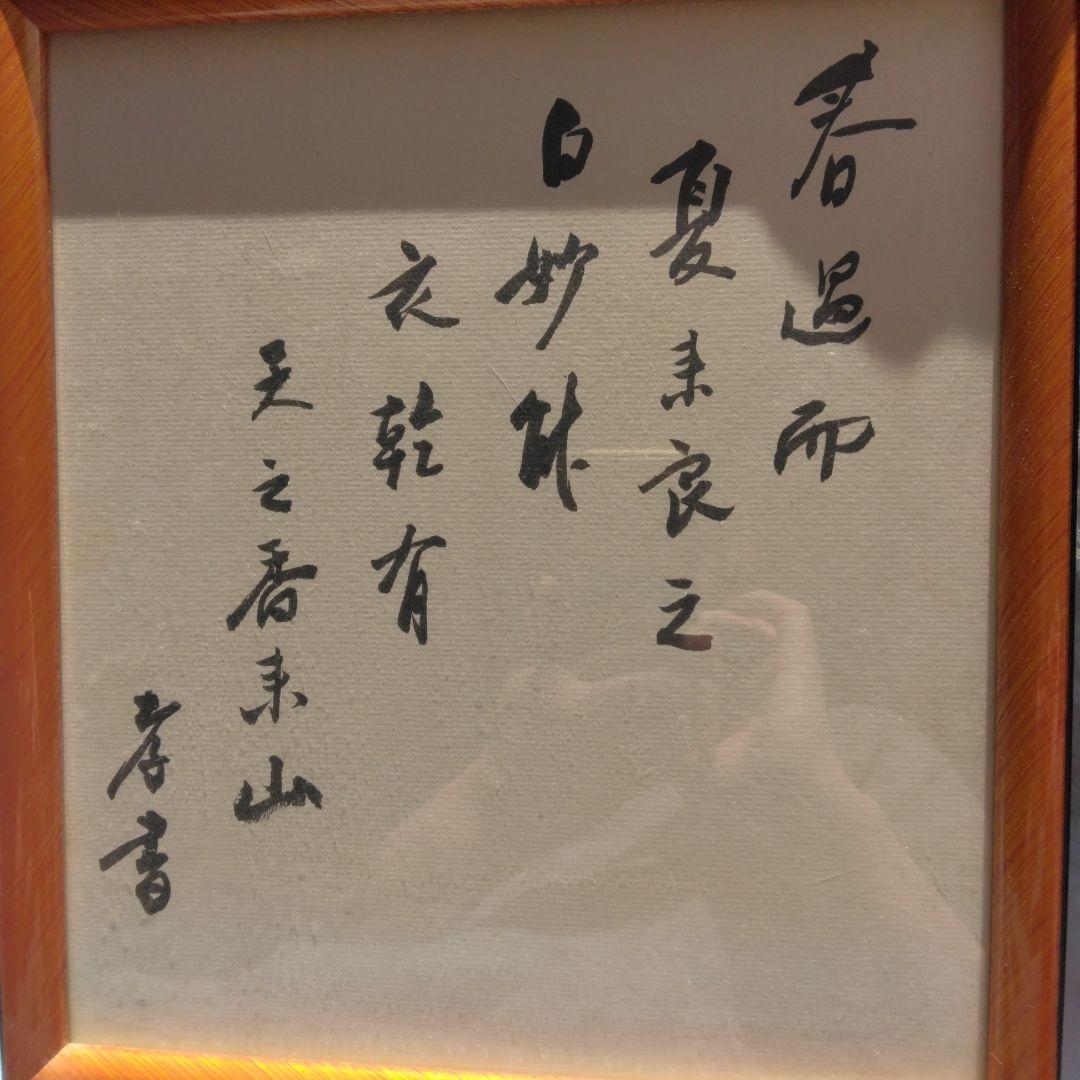 春過而
夏来良之
白妙能
衣乾有
天之香来山
孝書